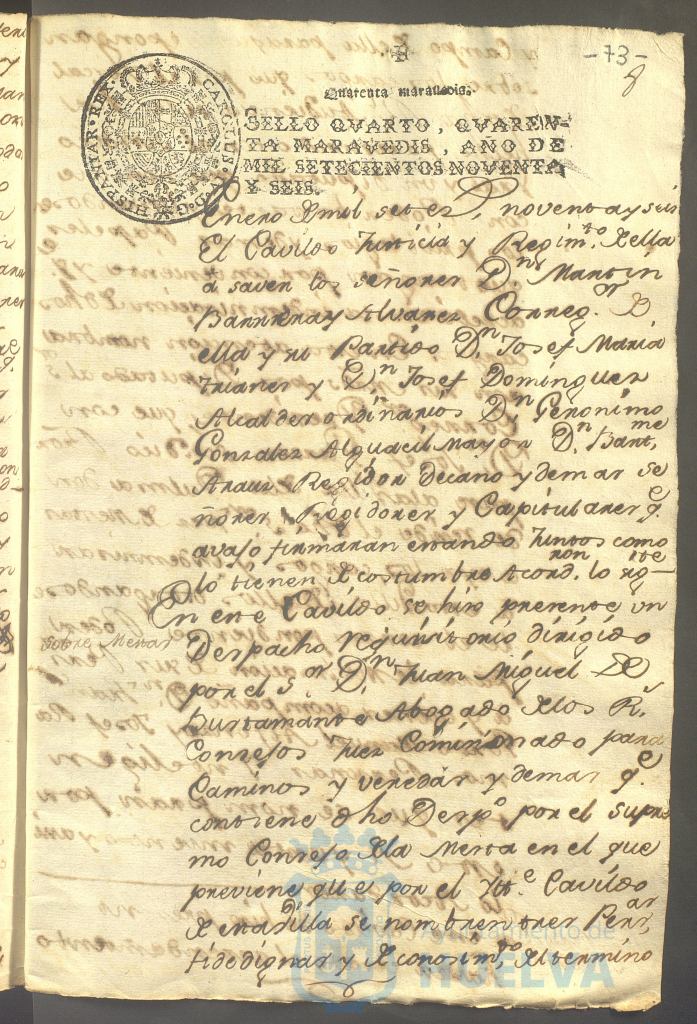 -73-
8
Quarenta maravedis.
SELLO QVARTO, QVAREN-
TA MARAVEDIS, AÑO DE
MIL SETECIENTOS NOVENTA
Y SEIS.
CAROLUS IV D. G. HISPANIAR. REX.
Enero mil setez.s noventa y seis
El Cavildo Justicia y Regim.to della
a saver los señores D.n Martin
Barrera y Alvarez Correg.or D
ella y su Partido D.n Josef Maria
Trianes y D.n Josef Dominguez
Alcaldes ordinarios D.n Geronimo
Gonzalez Alguacil Mayor D.n Bart.me
Arauz Regidor Decano y demas se
ñores Regidores y Capitulares q.e
avajo firmaran estando Juntos como
lo tienen de costumbre Acord.ron lo sig.ite
En este Cavildo se hizo presente un
sobre Mestas
Despacho requisitorio dirigido
por el S.or D.n Juan Miguel de
Bustamante Abogado de los R.s
Consejos Juez Comisionado para
Caminos y veredas y demas q.e
contiene dho Desp.o por el supre
mo Consejo de la Mesta en el que
previene que por el Ytt.e Cavildo
de esta Villa se nombren tres Perso.as
fidedignas y de conosim.to del termino
Ayuntamiento de
HUELVA